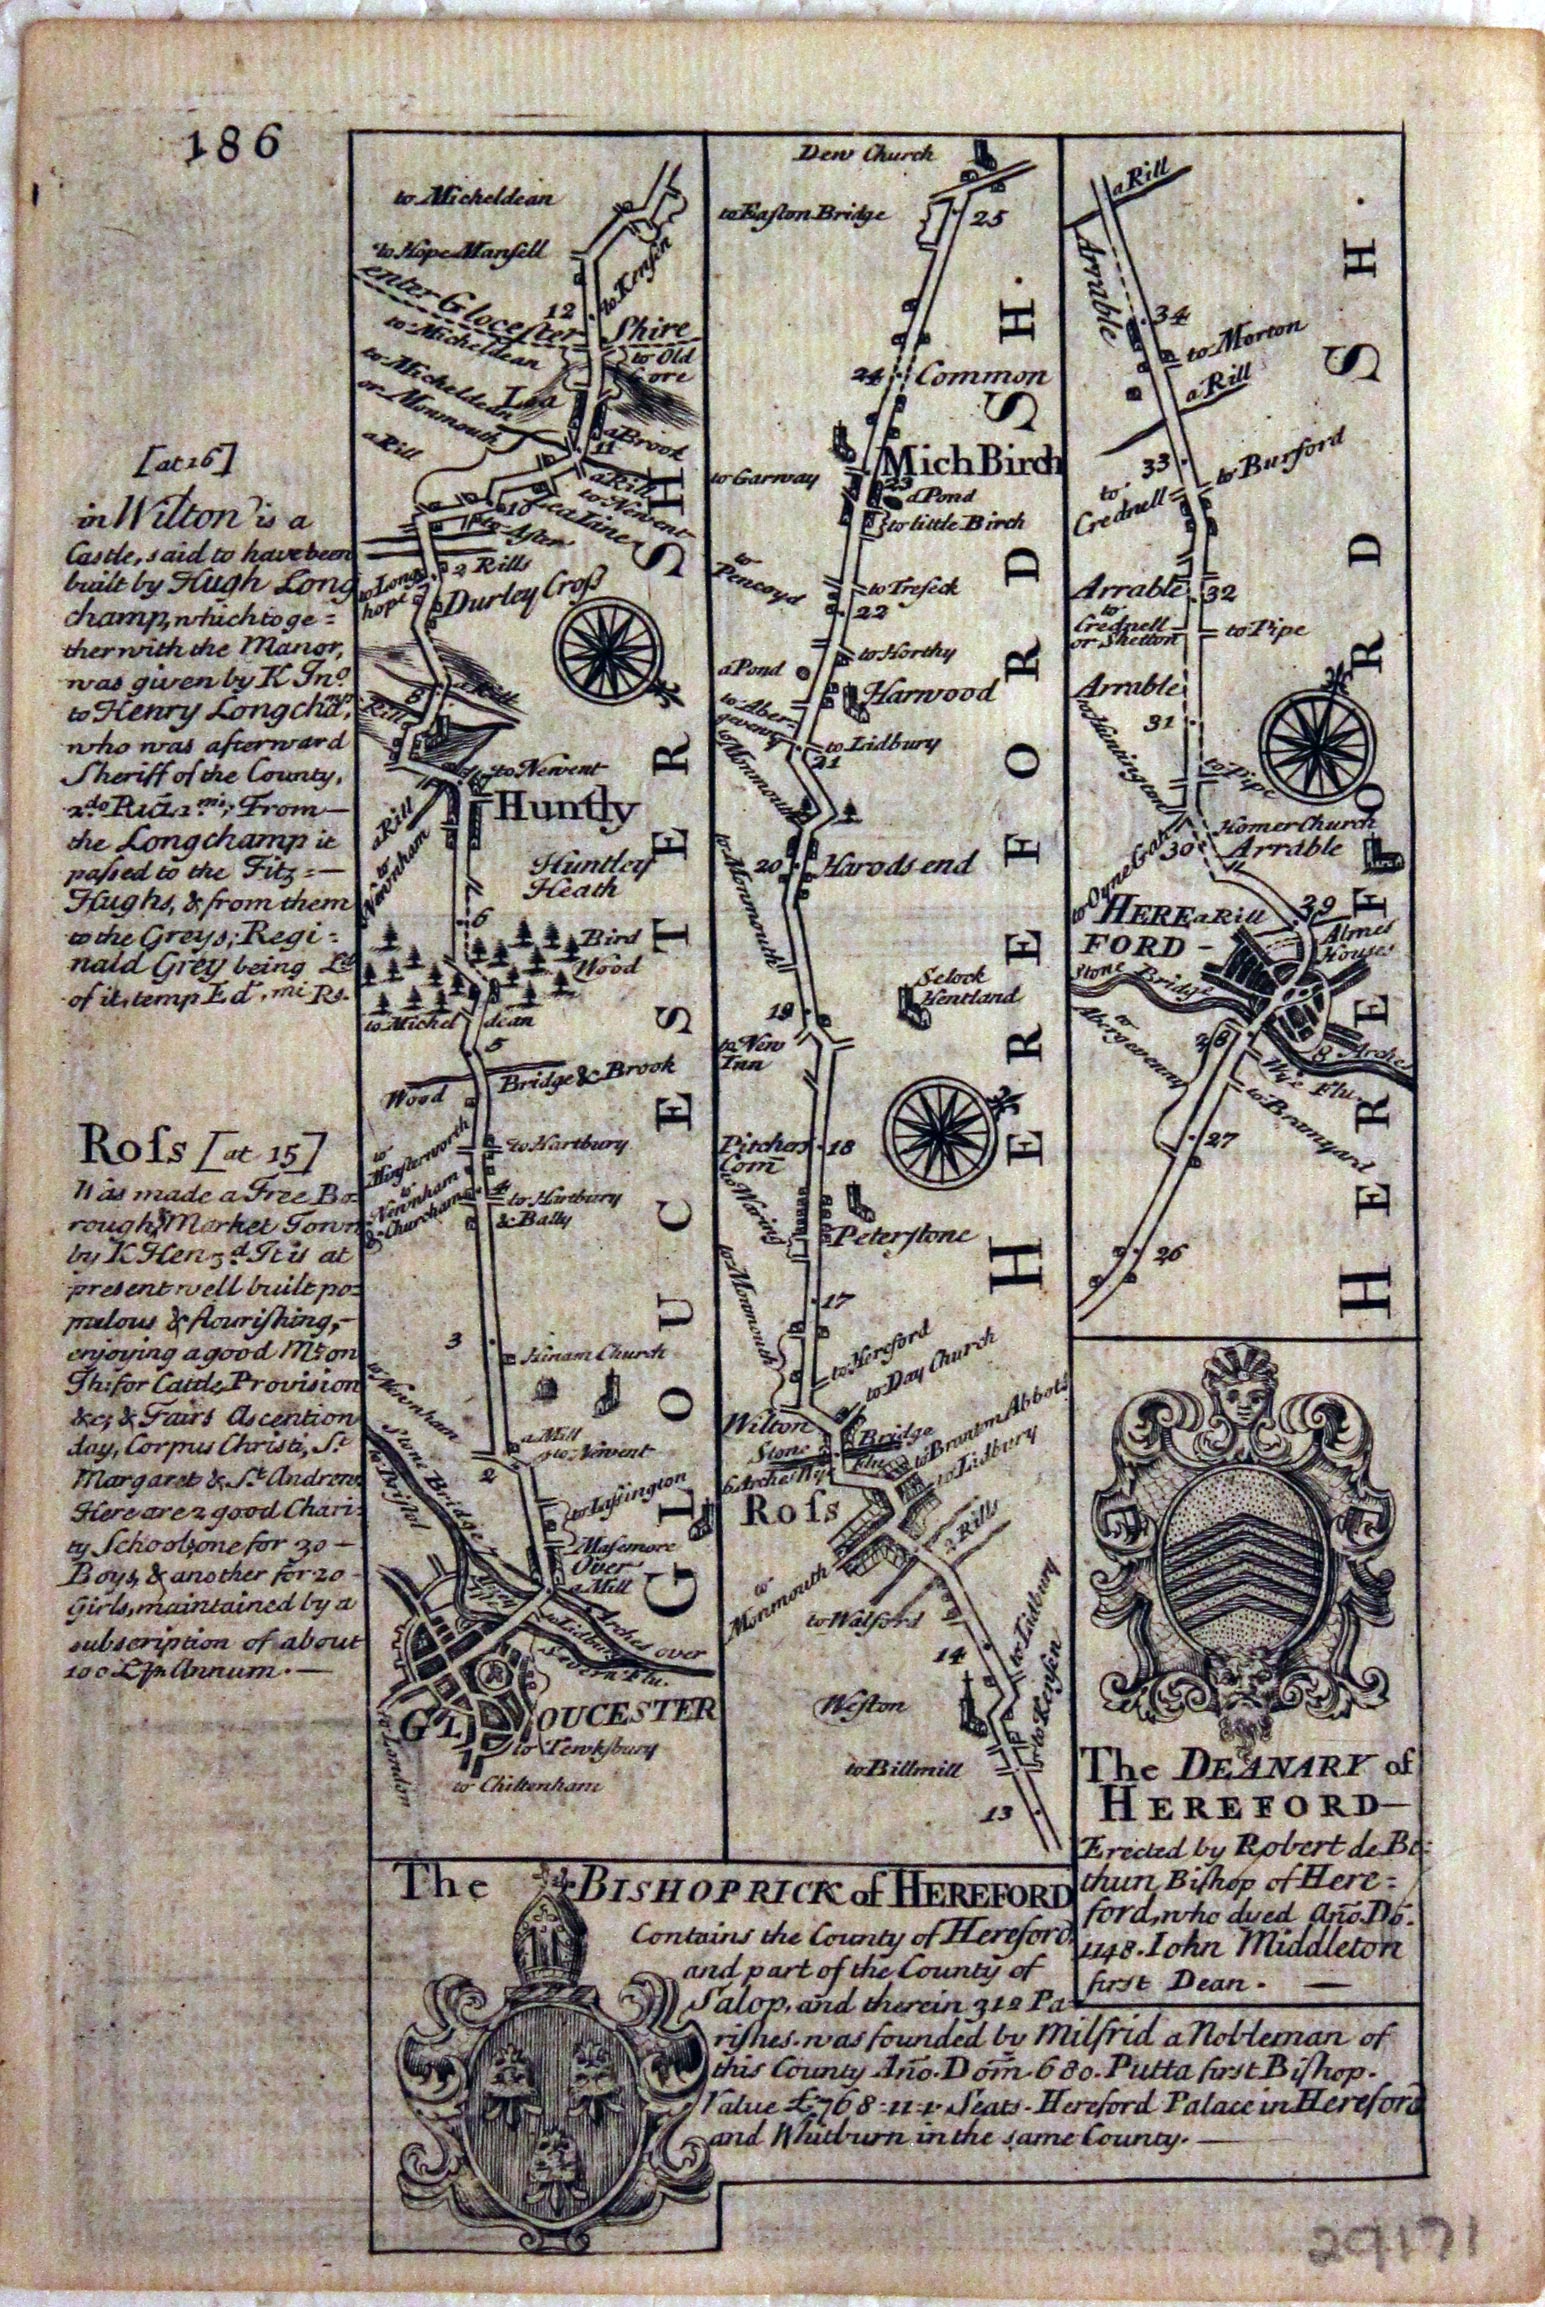 186
[at 16]
in Wilton is a
Castle, said to have been
built by Hugh Long
champ, which toge=
ther with the Manor,
was given by K Jno.
to Henry Longchamp,
who was afterward
Sheriff of the County,
2do Rid. 1mi; From—
the Longchamp it
paſsed to the Fitz=—
Hughs, & from them
to the Greys; Regi=
nald Grey being Ld.
of it, temp Ed. mi Rs.
Roſs [at 15]
Was made a Free Bo=
rough, & Market Town
by K Hen 3d. It is at
present well built po=
pulous & flouriſhing,—
enjoying a good Mt. on
Th: for Cattle, Proviſion
&c; & Fairs Ascention
day, Corpus Christi, St.
Margaret & St. Andrew.
Here are 2 good Chari=
ty Schools, one for 30—
Boys, & another for 20—
Girls, maintained by a
subscription of about
100 L pr Annum.—
to Micheldean
to Hope Manſell
to Kenſin
12
enter Gloceſter Shire
to Micheldean
to Old
Gore
to Micheldean
or Monmouth
Lea
a Brook
11
a Rill
a Rill
to Newent
Lea Line
10
to After
2 Rills
to Long
hope
Durley Croſs
a Rill
8
Rill
to Newent
Huntly
a Rill
to
Newnham
Huntley
Heath
6
Bird
Wood
to Michel dean
5
Bridge & Brook
Wood
to Hartbury
to
Minſterworth
4
to Hartbury
& Bally
to
Newnham
& Churcham
3
Hinam Church
to Newnham
a Mill
to Newent
2
Stone Bridge
to Briſtol
to Laſsington
Maſemore
Over
a Mill
Arches over
to Lidbury
Severn Flu.
GLOUCESTER
to Tewkſbury
to London
to Chiltenham
GLOUCESTERSH
Dew Church
to Eaſton Bridge
25
24
Common
MichBirch
to Garway
23
a Pond
to little Birch
to
Pencoyd
to Treſeck
22
to Horthy
a Pond
Harwood
to Aber-
gevenny
to Lidbury
21
to Monmouth
20
Harods end
to Monmouth
to Monmouth
Selock
Hentland
19
to New
Inn
Pitchers
Com
18
to Waring
Peterſtone
to Monmouth
17
to Hereford
to Day Church
Wilton
Bridge
Stone
6 Arches Wye Flu
to Bramton Abbots
to Lidbury
Roſs
2 Rills
to
Monmouth
to Walford
to Lidbury
14
Weſton
to Kenſin
to Billmill
13
HEREFORDSH.
a Rill
Arrable
34
to Morton
a Rill
33
to Burford
to
Crednell
Arrable
32
to
Crednell
or Shetton
to Pipe
Arrable
31
to Huntington
to Pipe
Homer Church
30
Arrable
to Oyne Gate
HERE
FORD—
a Rill
29
Almes
Houses
Stone Bridge
to
Abergevenny
28
8 Arches
Wye Flu.
to Bramyard
27
26
HEREFORDSH.
The DEANARY of
HEREFORD—
Erected by Robert de Be=
thun Biſhop of Here=
ford, who dyed Ano. Do.
1148. Iohn Middleton
first Dean.—
The BISHOPRICK of HEREFORD
Contains the County of Hereford,
and part of the County of
Salop, and therein 312 Pa
riſhes. was founded by Milfrid a Nobleman of
this County Ano. Dom. 680. Putta first Biſhop.
Value £768=11=1. Seats. Hereford Palace in Hereford
and Whitburn in the same County.—
29171